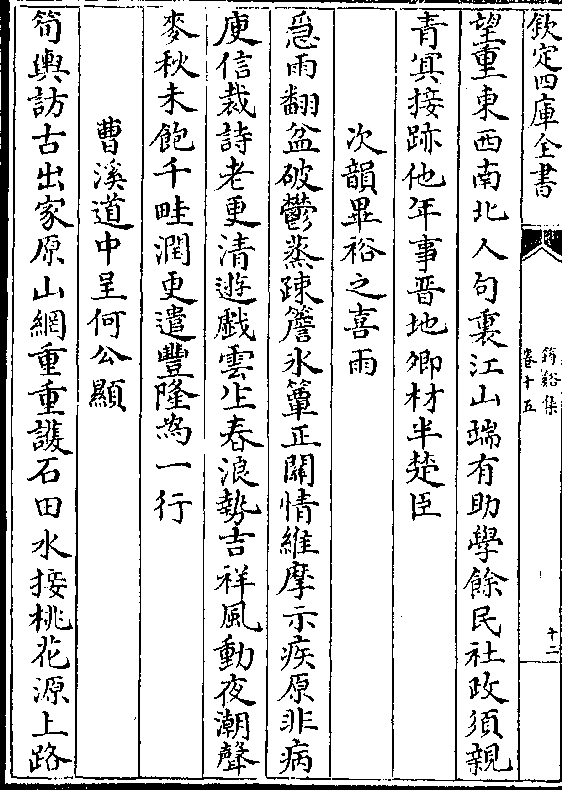 欽定四庫全書
筠谿集
卷十五
十二
望重東西南北人句裏江山端有助學餘民社政須親
青冥接跡他年事晉地卿材半楚臣
次韻畢裕之喜雨
急雨翻盆破鬱蒸疎簷氷簟正關情維摩示疾原非病
庾信裁詩老更清遊戲雲生春浪勢吉祥風動夜潮聲
麥秋未飽千畦潤更遣豐隆為一行
曹溪道中呈何公顯
筍輿訪古出家原山網重重護石田水接桃花源上路